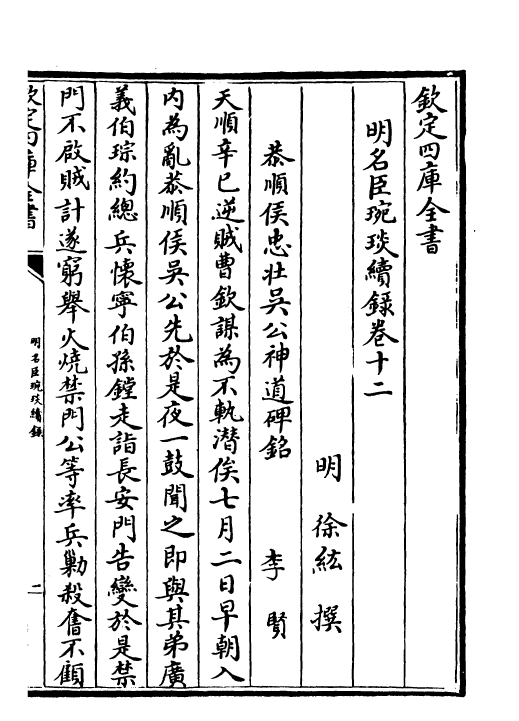 欽定四庫全書
明名臣琬琰續錄卷十二
明 徐紘 撰
恭順侯忠壯吳公神道碑銘 李賢
天順辛巳逆賊曹欽謀為不軌潛俟七月二日早朝入
內為亂恭順侯吳公先於是夜一鼓聞之即與其弟廣
義伯琮約總兵懷寧伯孫鏜走詣長安門告變於是禁
門不啟賊計遂窮舉火燒禁門公等率兵勦殺奮不顧
欽定四庫全書
明名臣琬琰續錄
二